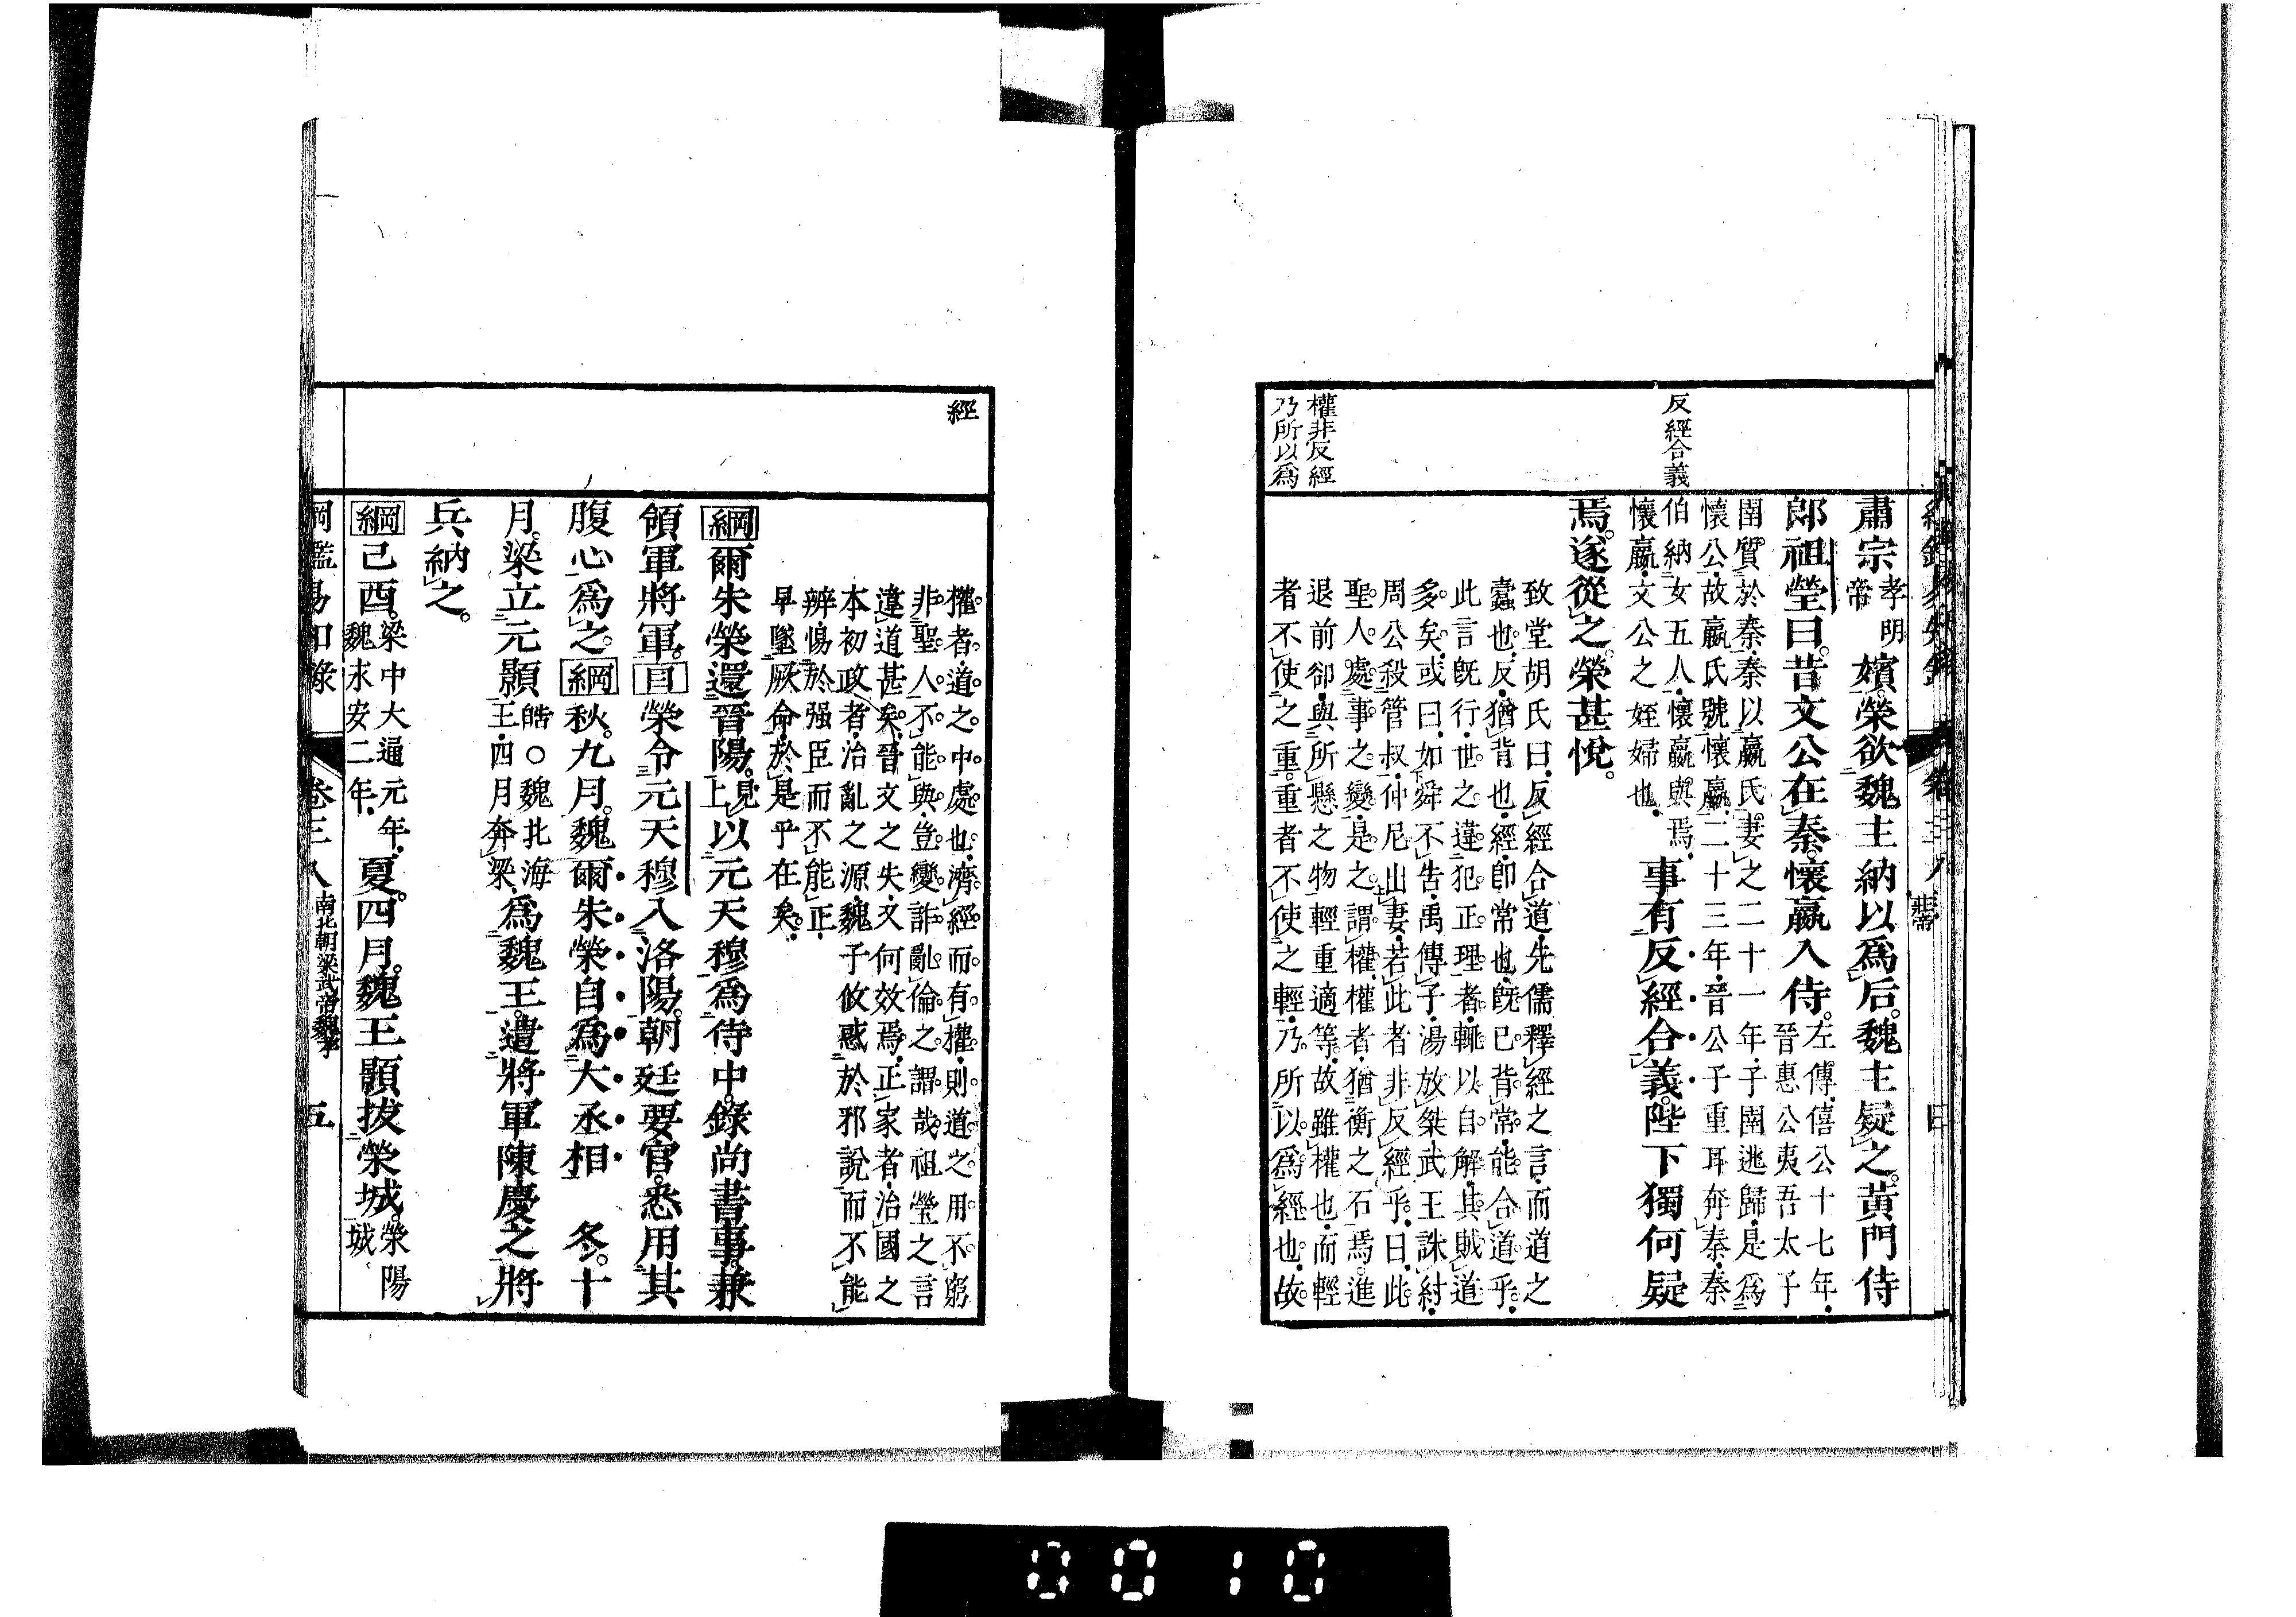 反經合義
權非反經
乃所以爲
肅宗孝明帝嬪。榮欲魏主納以爲后。魏主疑之。黃門侍
郎祖瑩曰。昔文公在秦。懷嬴入侍。左傳僖公十七年。晉惠公夷吾太子
圉質於秦。秦以嬴氏妻之二十一年。子圉逃歸。是爲
懷公。故嬴氏號懷嬴。二十三年。晉公子重耳奔秦。秦
伯納女五人。懷嬴與焉。
懷嬴。文公之姪婦也。
事有反經合義。陛下獨何疑
焉。遂從之。榮甚悅。
致堂胡氏曰。反經合道。先儒釋經之言。而道之
蠹也。反猶背也。經卽常也。旣已背常。能合道乎。
此言旣行。世之違犯正理者。輒以自解。其賊道
多矣。或曰。如舜不告。禹傳子。湯放桀。武王誅紂。
周公殺管叔。仲尼出妻。若此者非反經乎。曰。此
聖人處事之變。是之謂權。權者。猶衡之石焉。進
退前卻。與所懸之物輕重適等。故雖權也。而輕
者不使之重。重者不使之輕。乃所以爲經也。故
經
權者。道之中處也。濟經而有權。則道之用不窮。
非聖人不能與。豈變詐亂倫之謂哉。祖瑩之言
違道甚矣。晉文之失。又何效焉。正家者。治國之
本。初政者。治亂之源。魏子攸惑於邪說而不能
辨。惕於强臣而不能正。
早墜厥命。於是乎在矣。
綱爾朱榮還晉陽。見上以元天穆爲侍中。錄尚書事。兼
領軍將軍。目榮令元天穆入洛陽。朝廷要官。悉用其
腹心爲之。綱秋。九月。魏爾朱榮自爲大丞相 冬。十
月。梁立元顥皓○魏北海王。四月奔梁。爲魏王。遣將軍陳慶之將
兵納之。
綱己酉。梁中大通元年。魏永安二年。夏。四月。魏王顥拔榮城。榮陽城。
卷三八 南北朝梁武帝魏 五